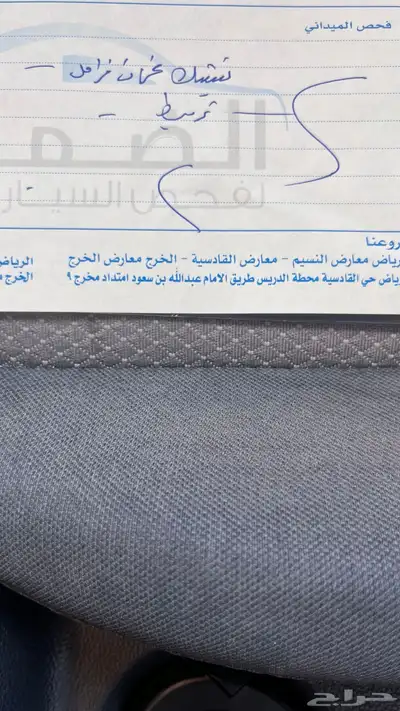 فحص الميداني
تشيك عمان فرامل -
- تربيط -
الضمـ
لفحص السيار
روعنا
رياض معارض النسيم - معارض القادسية - الخرج معارض الخرج
رياض حي القادسية محطة الدريس طريق الامام عبدالله بن سعود امتداد مخرج ٩
الرياض
الخرج م
حراج